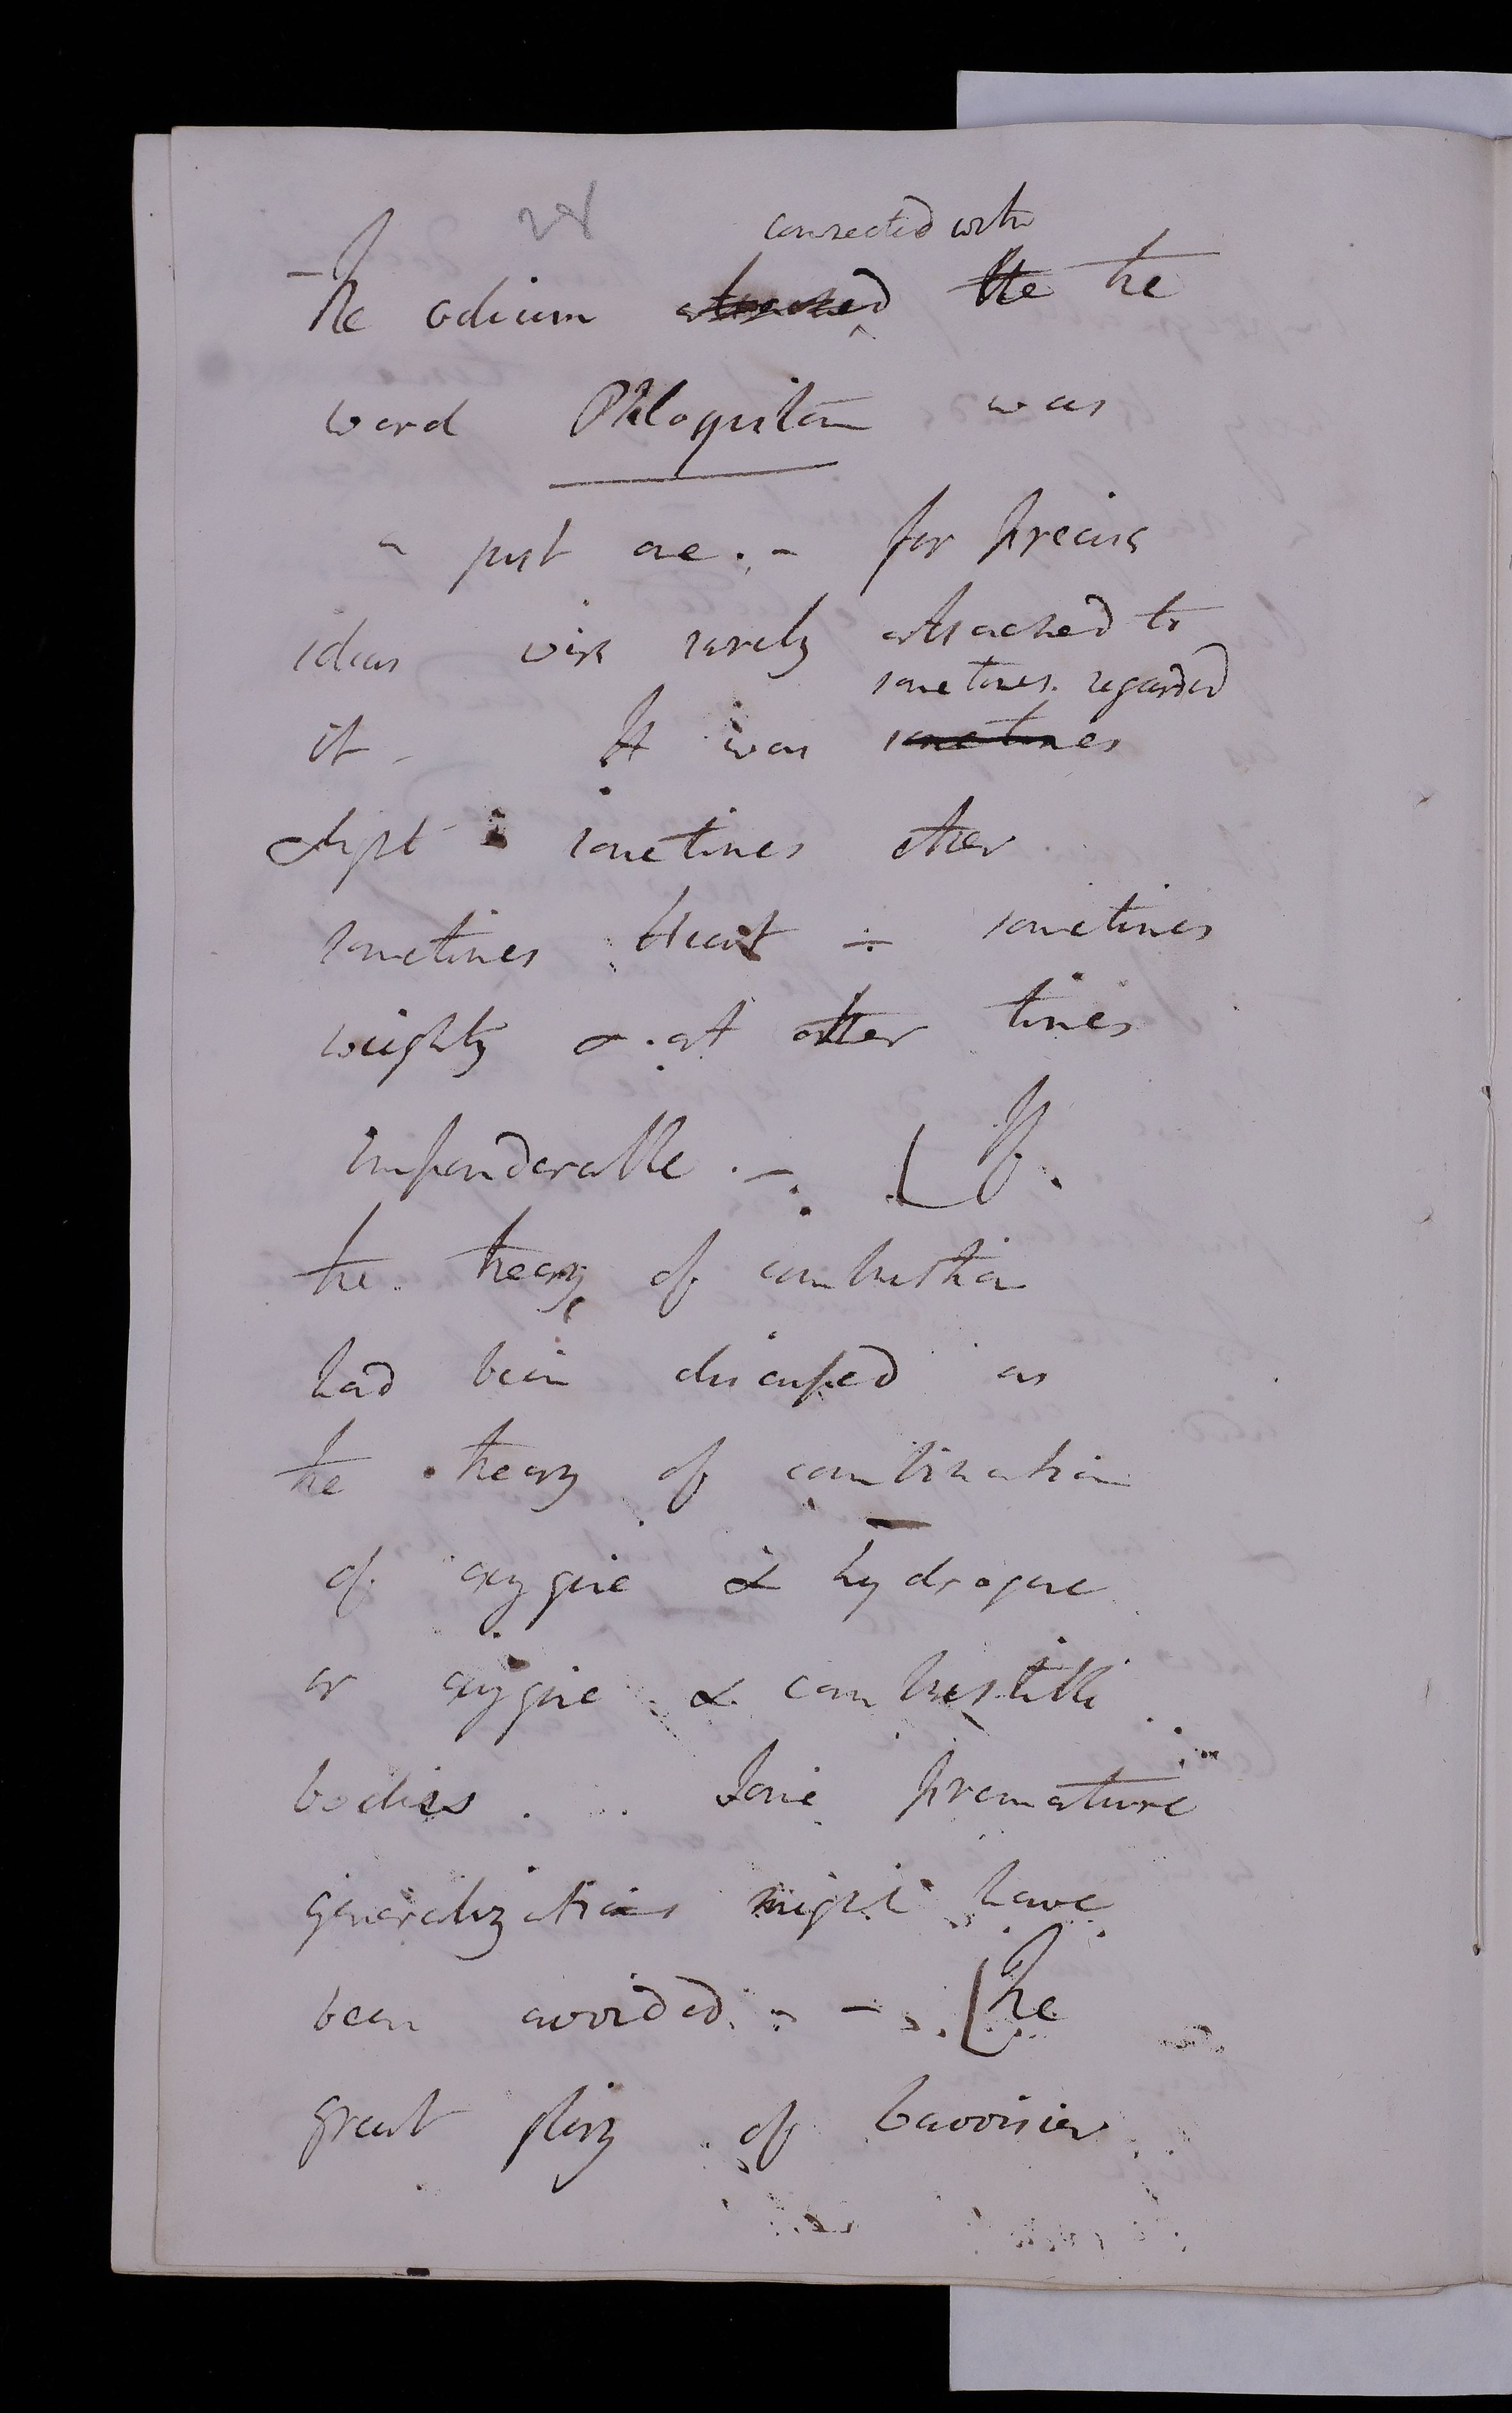 28
connected with
The odium attached the the
word Phlogiston was
a just one. - for precise
ideas were rarely attached to
sometimes regarded
it - It was sometimes
as light sometimes other
sometimes Heat - sometimes
weighty & at other times
imponderable. - [If
the theory of combustion
had been discussed as
the theory of combination
of oxygene & hydrogene
or oxygene & combustible
bodies. Some premature
generalizations might have
been avoided. - [The
great glory of Lavoisier